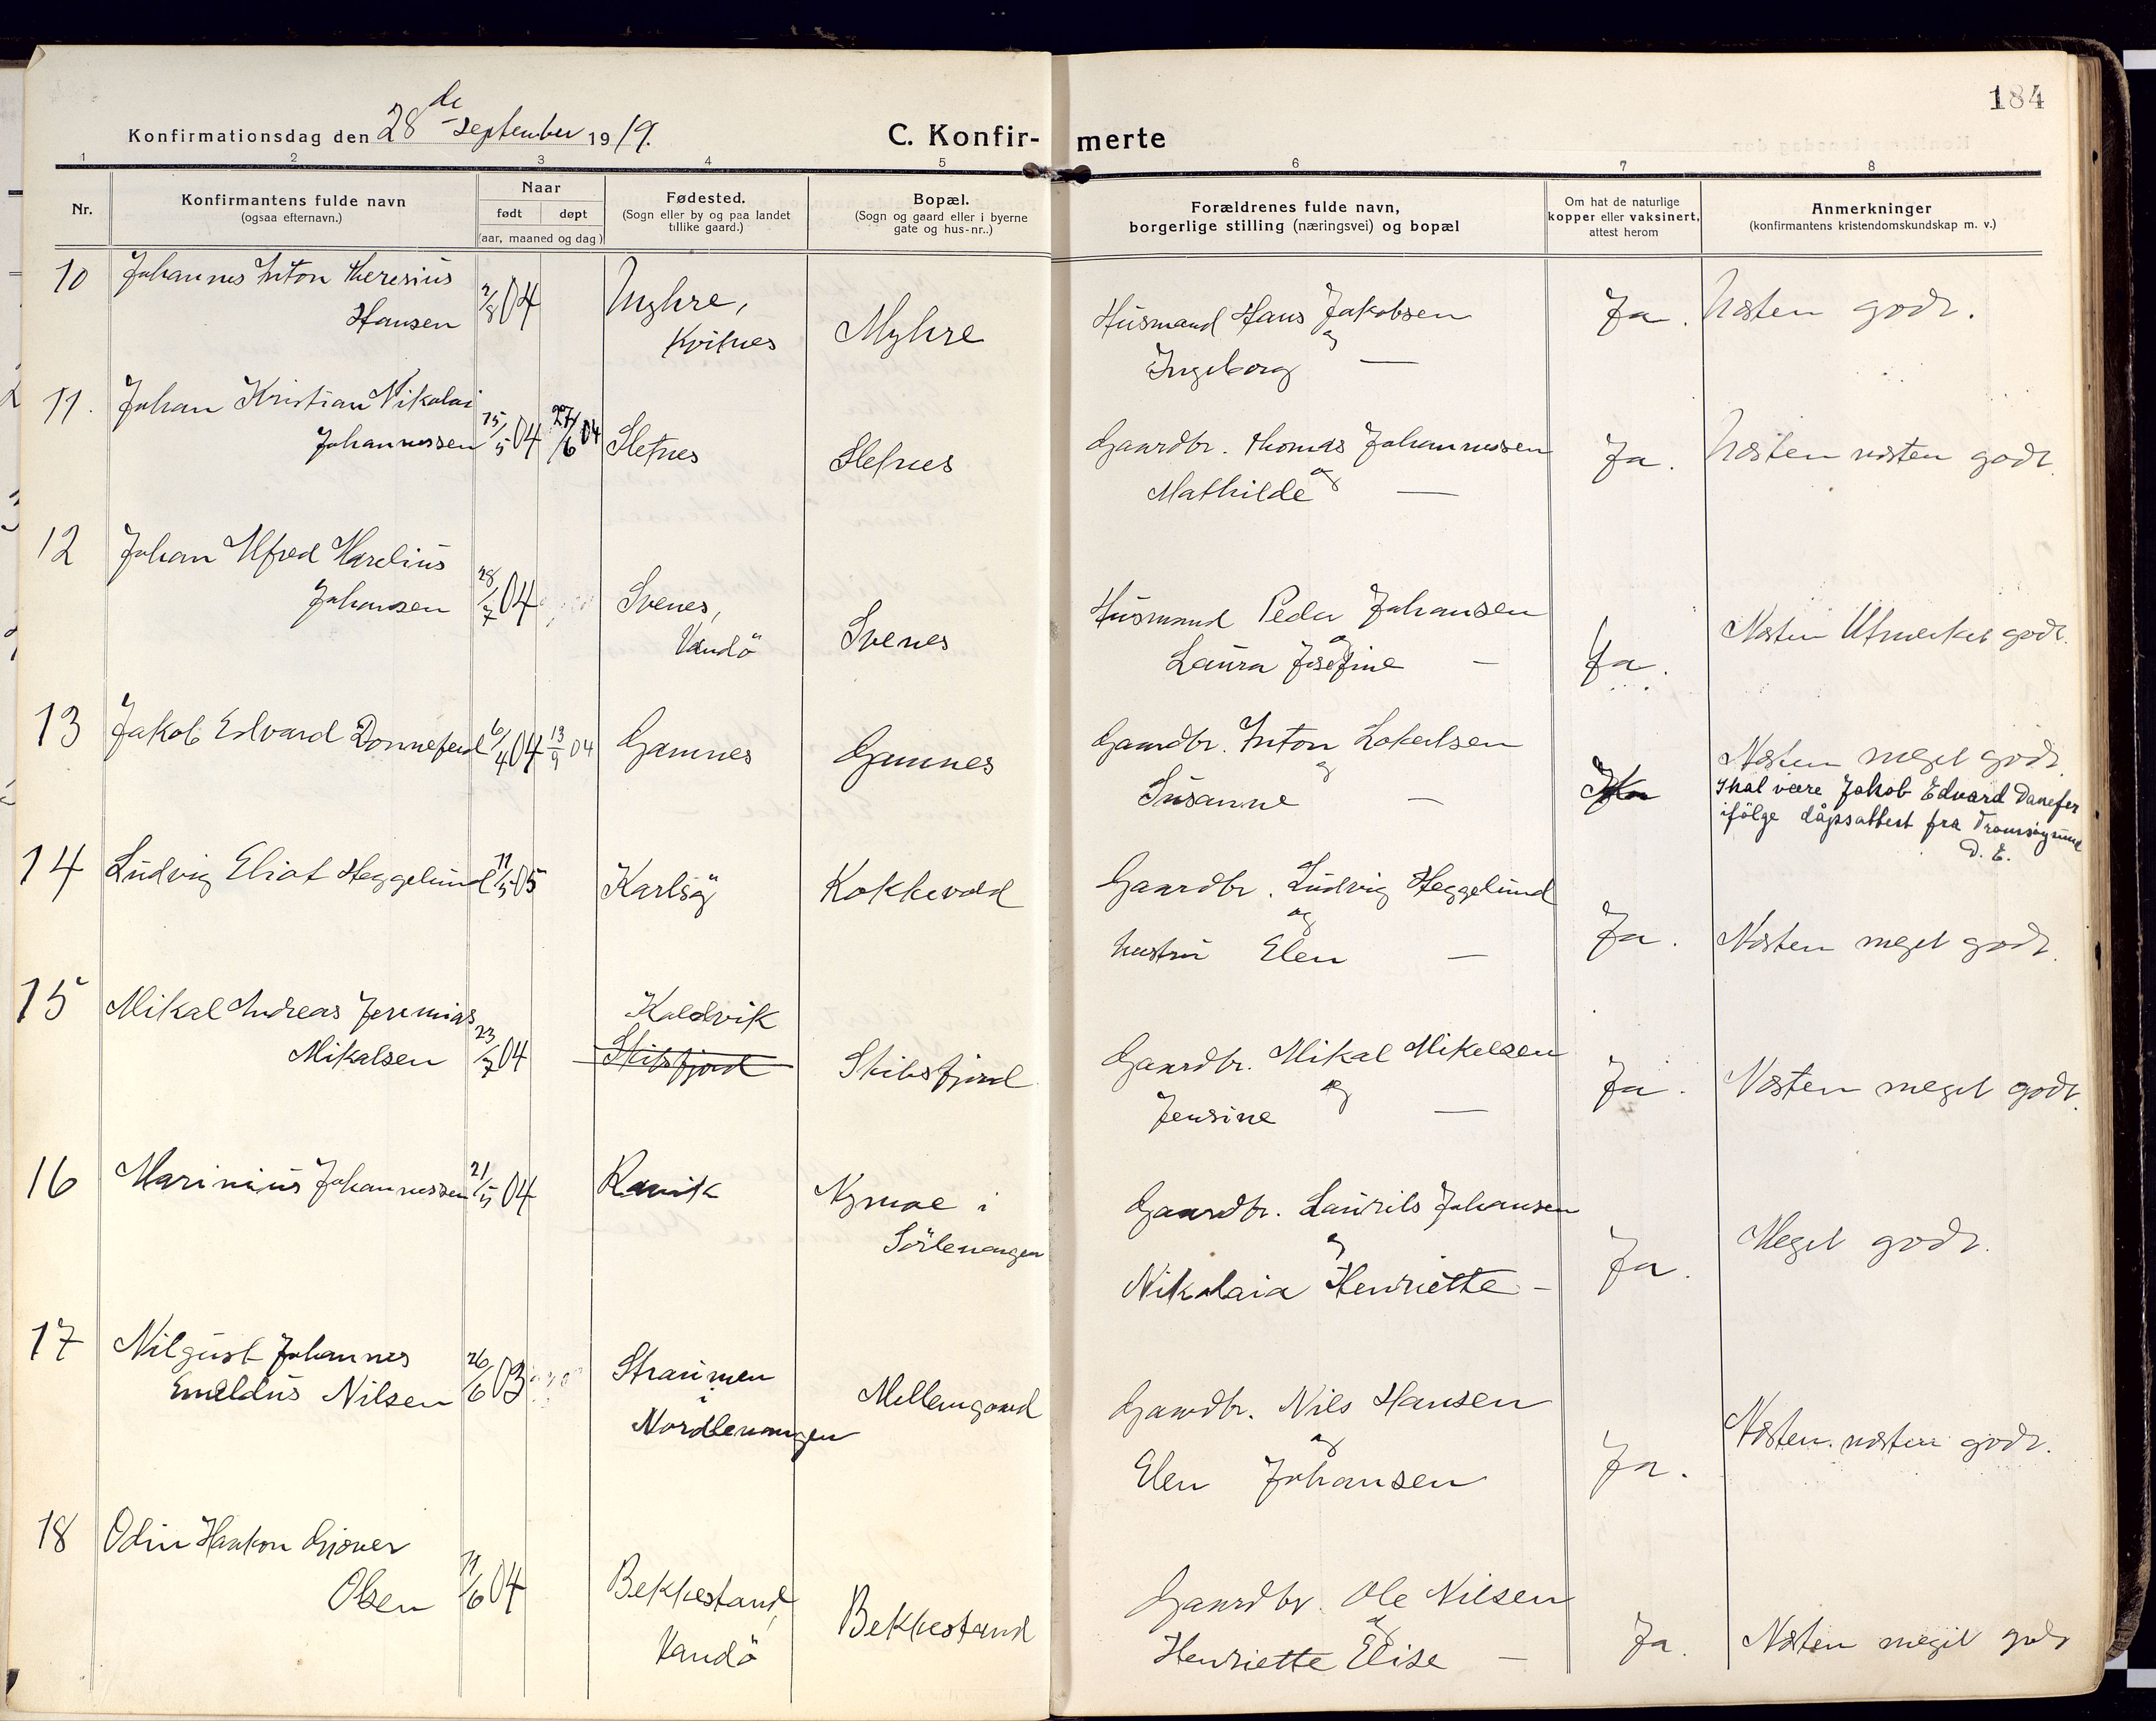 184
Konfirmationsdag den 28de september 1919.
C. Konfirmerte
1 2 3 4 5 6 7 8
Nr.
Konfirmantens fulde navn
(ogsaa efternavn.)
Naar
født døpt
(aar, maaned og dag)
Fødested.
(Sogn eller by og paa landet
tillike gaard.)
Bopæl.
(Sogn og gaard eller i byerne
gate og hus-nr..)
Forældrenes fulde navn,
borgerlige stilling (næringsvei) og bopæl
Om hat de naturlige
kopper eller vaksinert,
attest herom
Anmerkninger
(konfirmantens kristendomskundskap m. v.)
10 Johannes Anton Theresius
Hansen 2/8 04 Myhre,
Kvitnes Myhre Husmand Hans Jakobsen
og
Ingeborg — Ja. Næsten godt.
11. Johan Kristian Nikolai
Johannessen 15/5 04 27/6 04 Sletnes Sletnes Gaardbr. Thomas Johannessen
og
Mathilde — Ja. Næsten næsten godt
12 Johan Alfred Marelius
Johansen 28/7 04 Svenes,
Vandö Svenes Husmand Peder Johansen
og
Laura Josefine — Ja. Næsten Utmerket godt.
13 Jakob Edvard Donnefeid 6/4 04 13/9 04 Gamnes Gamnes Gaardbr. Anton Lokelsen
og
Susanne — Ja Næsten meget godt
Skal være Jakob Edvard Danefer
ifölge dåpsattest fra Tromsøysund
D. E.
14 Ludvig Eliot Heggelund 11/5 05 Karlsö Kokkevold Gaardbr. Ludvig Heggelund
og
hustru Elen — Ja. Næsten meget godt.
15 Mikal Andreas Jeremias
Mikalsen 23/7 04 Kaldvik
Skibsfjord Skibsfjord Gaardbr. Mikal Mikelsen
og
Jensine — Ja. Næsten meget godt.
16 Marinius Johannessen 21/5 04 Ravik Nymoe i
Sörlenangen Gaardbr. Laurits Johansen
og
Nikolaia Henriette — Ja. Meget godt.
17 Nilgust Johannes
Emeldus Nilsen 26/6 03 Straumen
i
Nordlenangen Mellemgaard Gaardbr. Nils Hansen
og
Elen Johansen Ja. Næsten næsten godt.
18 Odin Haakon Gjøver
Olsen 11/6 04 Bekkestand,
Vandö Bekkestand Gaardbr. Ole Nilsen
og
Henriette Elise — Ja. Næsten meget godt